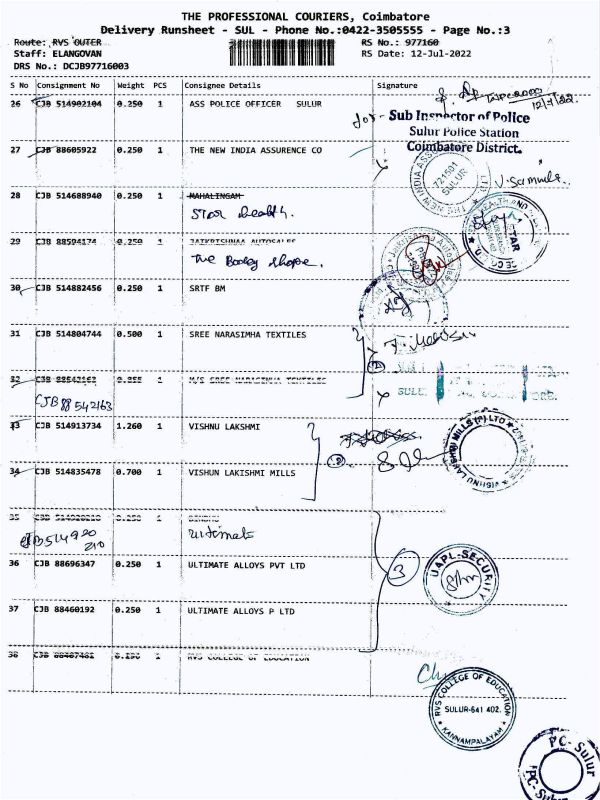 THE PROFESSIONAL COURIERS, Coimbatore
Delivery Runsheet - SUL - Phone No.:0422-3505555 - Page No.:3
Route: RVS OUTER
RS No.: 977160
Staff: ELANGOVAN
RS Date: 12-Jul-2022
DRS No.: DCJB97716003
S No Consignment No Weight PCS Consignee Details Signature
26 CJB 514902104 0.250 1 ASS POLICE OFFICER SULUR
for Sub Inspector of Police
Sulur Police Station
Coimbatore District.
27 CJB 88605922 0.250 1 THE NEW INDIA ASSURENCE CO
721501
SULUR
28 CJB 514688940 0.250 1 MAHALINGAM
Star health.
STAR
29 CJB 88594174 0.250 1 JAIKRISHNAA AUTOSALES
The Booky shope.
30 CJB 514882456 0.250 1 SRTF BM
31 CJB 514804744 0.500 1 SREE NARASIMHA TEXTILES
32 CJB 88542163 1 M/S SREE NARASIMHA TEXTILES
CJB 88542163
33 CJB 514913734 1.260 1 VISHNU LAKSHMI
VISHNU LAKSHMI MILLS (P) LTD
34 CJB 514835478 0.700 1 VISHUN LAKISHMI MILLS
35 0.250 1
CJB514920
210
36 CJB 88696347 0.250 1 ULTIMATE ALLOYS PVT LTD
3
UAPL-SECURITY
37 CJB 88460192 0.250 1 ULTIMATE ALLOYS P LTD
38 CJB 88407481 1 RVS COLLEGE OF EDUCATION
RVS COLLEGE OF EDUCATION
SULUR-641 402.
KANNAMPALAYAM
PC- Sulur